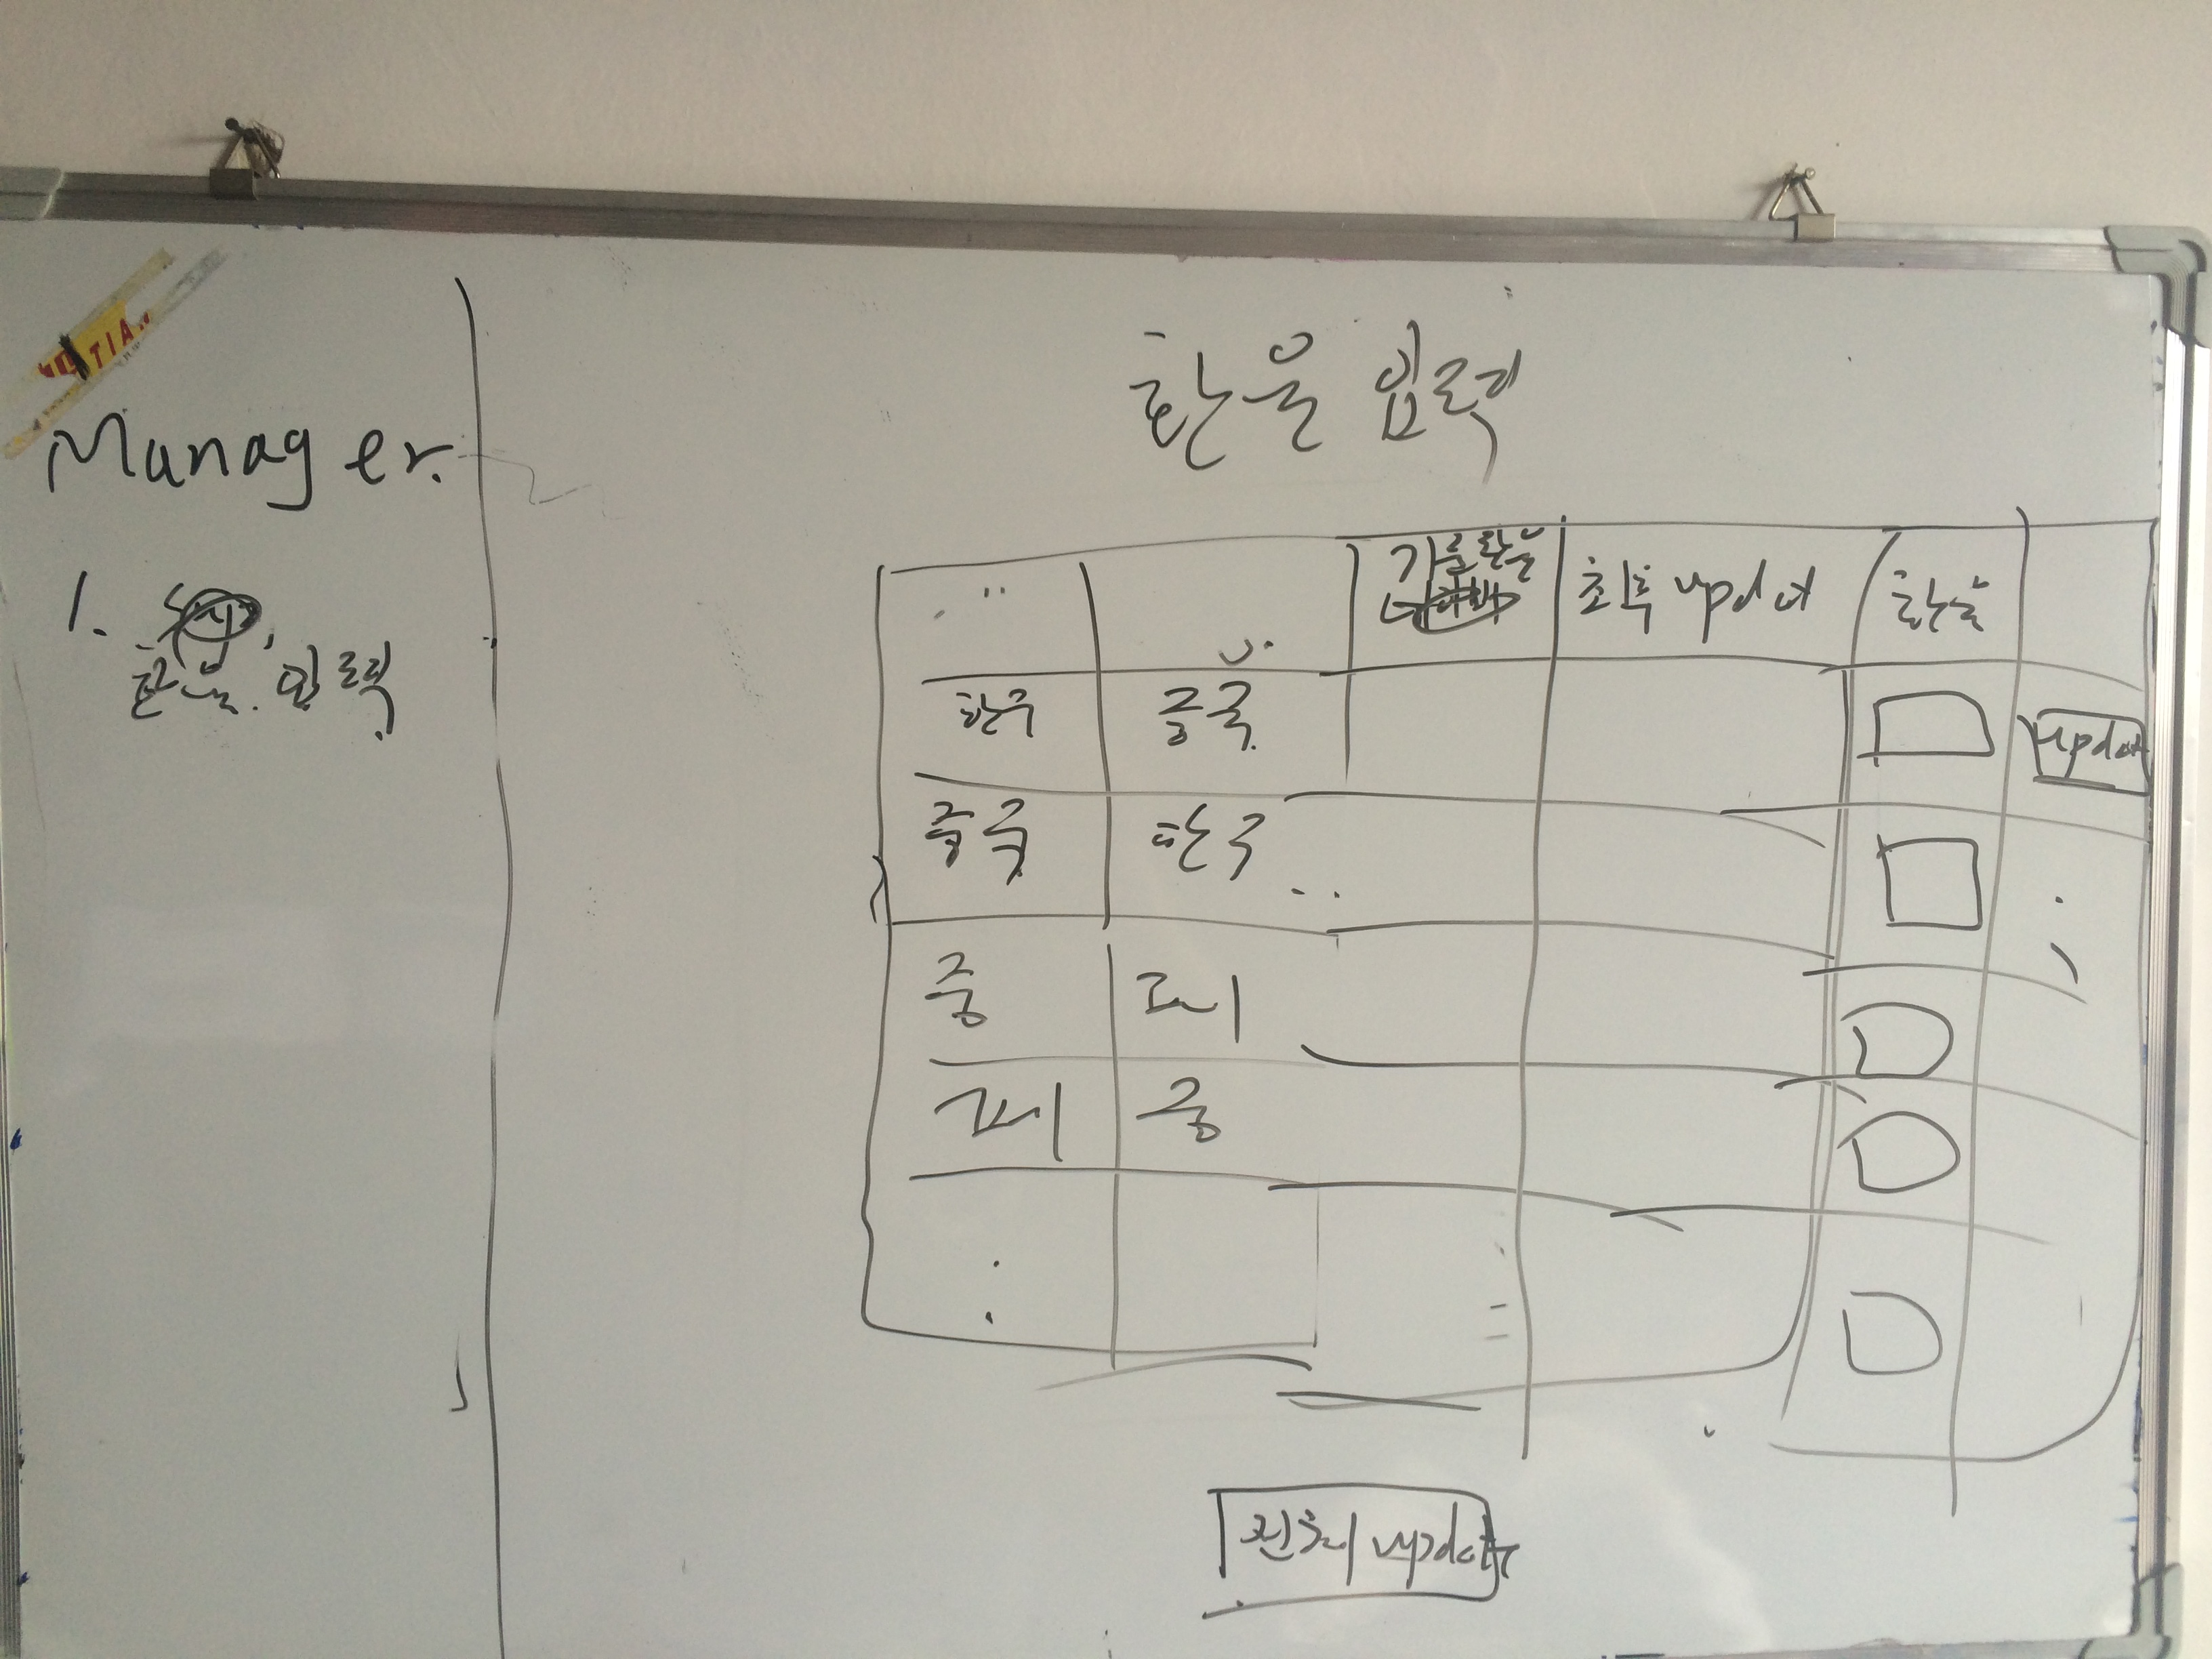 Manager.
1.
환율. 입력
환율 입력
기준환율
최후 update
환율
한국
중국
update
중국
한국
중
페
페
중
전체 update